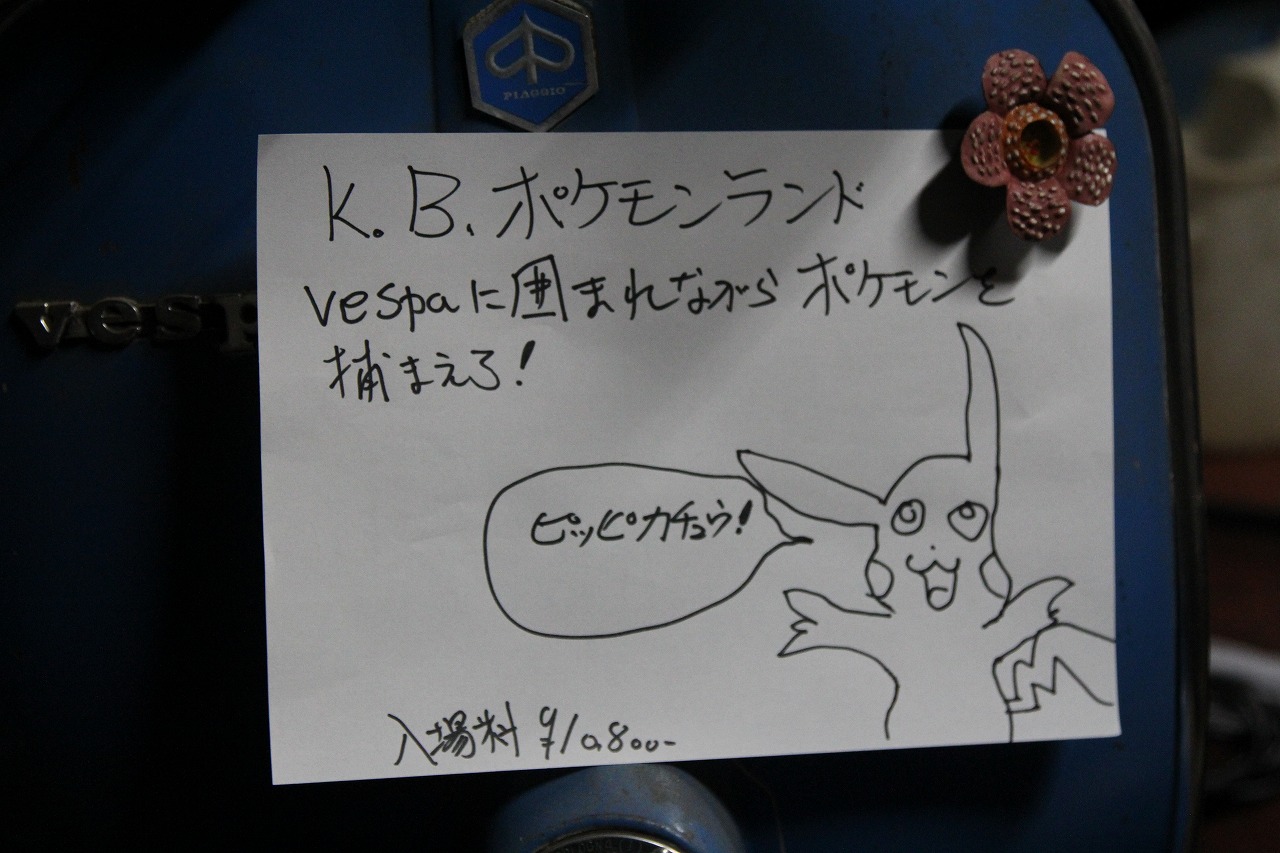 PIAGGIO
K.B.ポケモンランド
vesp
vespaに囲まれながらポケモンを
捕まえろ!
ピッピカチュウ!
入場料 ¥10,800-